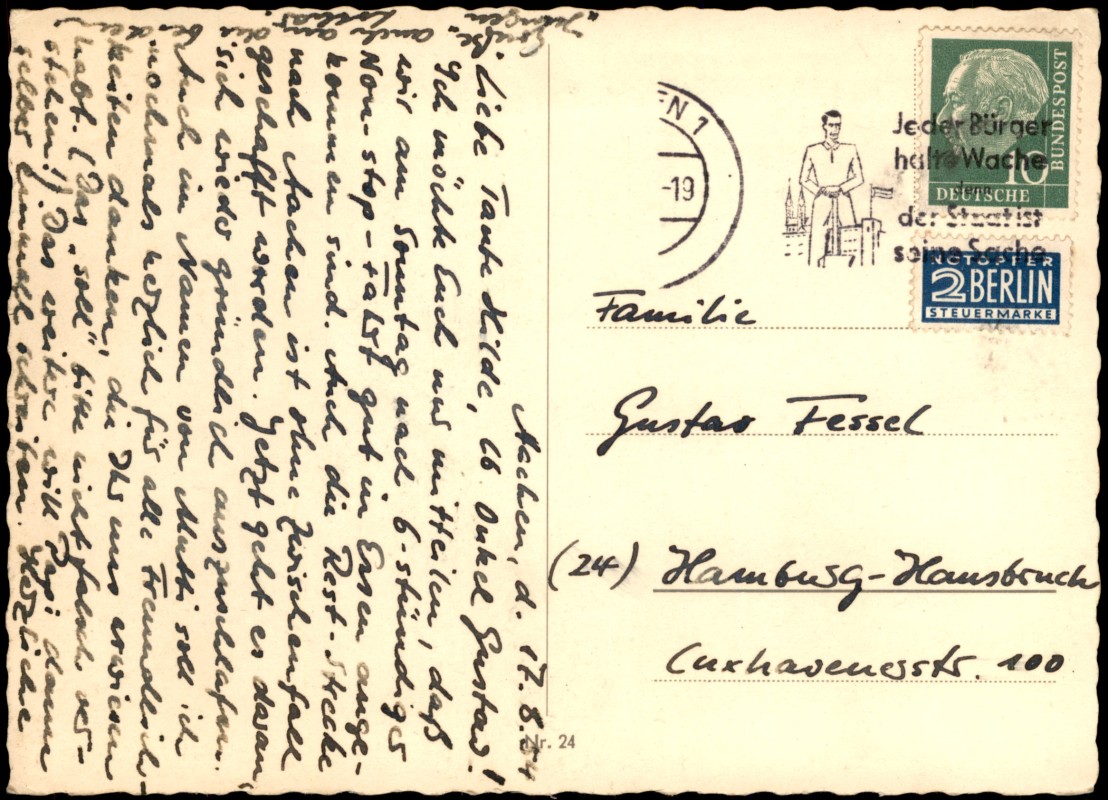 Aachen, d. 17.8.54
Liebe Tante Hilde, lb. Onkel Gustav!
Ich möchte Euch nur mitteilen, daß
wir am Sonntag nach 6-stündiger
Non-stop-Fahrt gut in Essen ange-
kommen sind. Auch die Rest-Strecke
nach Aachen ist ohne Zwischenfall
geschafft worden. Jetzt geht es daran,
sich wieder gründlich auszuschlafen.
Auch im Namen von Mutti soll ich
nochmals herzlich für alle Freundlich-
keiten danken, die Ihr uns erwiesen
habt. (Das "soll" bitte nicht falsch ver-
stehen!). Das weitere will Papi dann
selber einmal schreiben. Herzliche
Grüße auch
Nr. 24
EN 1
-19
Jeder Bürger
halte Wache
denn
der Staat ist
seine Sache
DEUTSCHE
BUNDESPOST
10
NOTOPFER
2 BERLIN
STEUERMARKE
Familie
Gustav Fessel
(24) Hamburg-Hausbruch
Cuxhavenerstr. 100